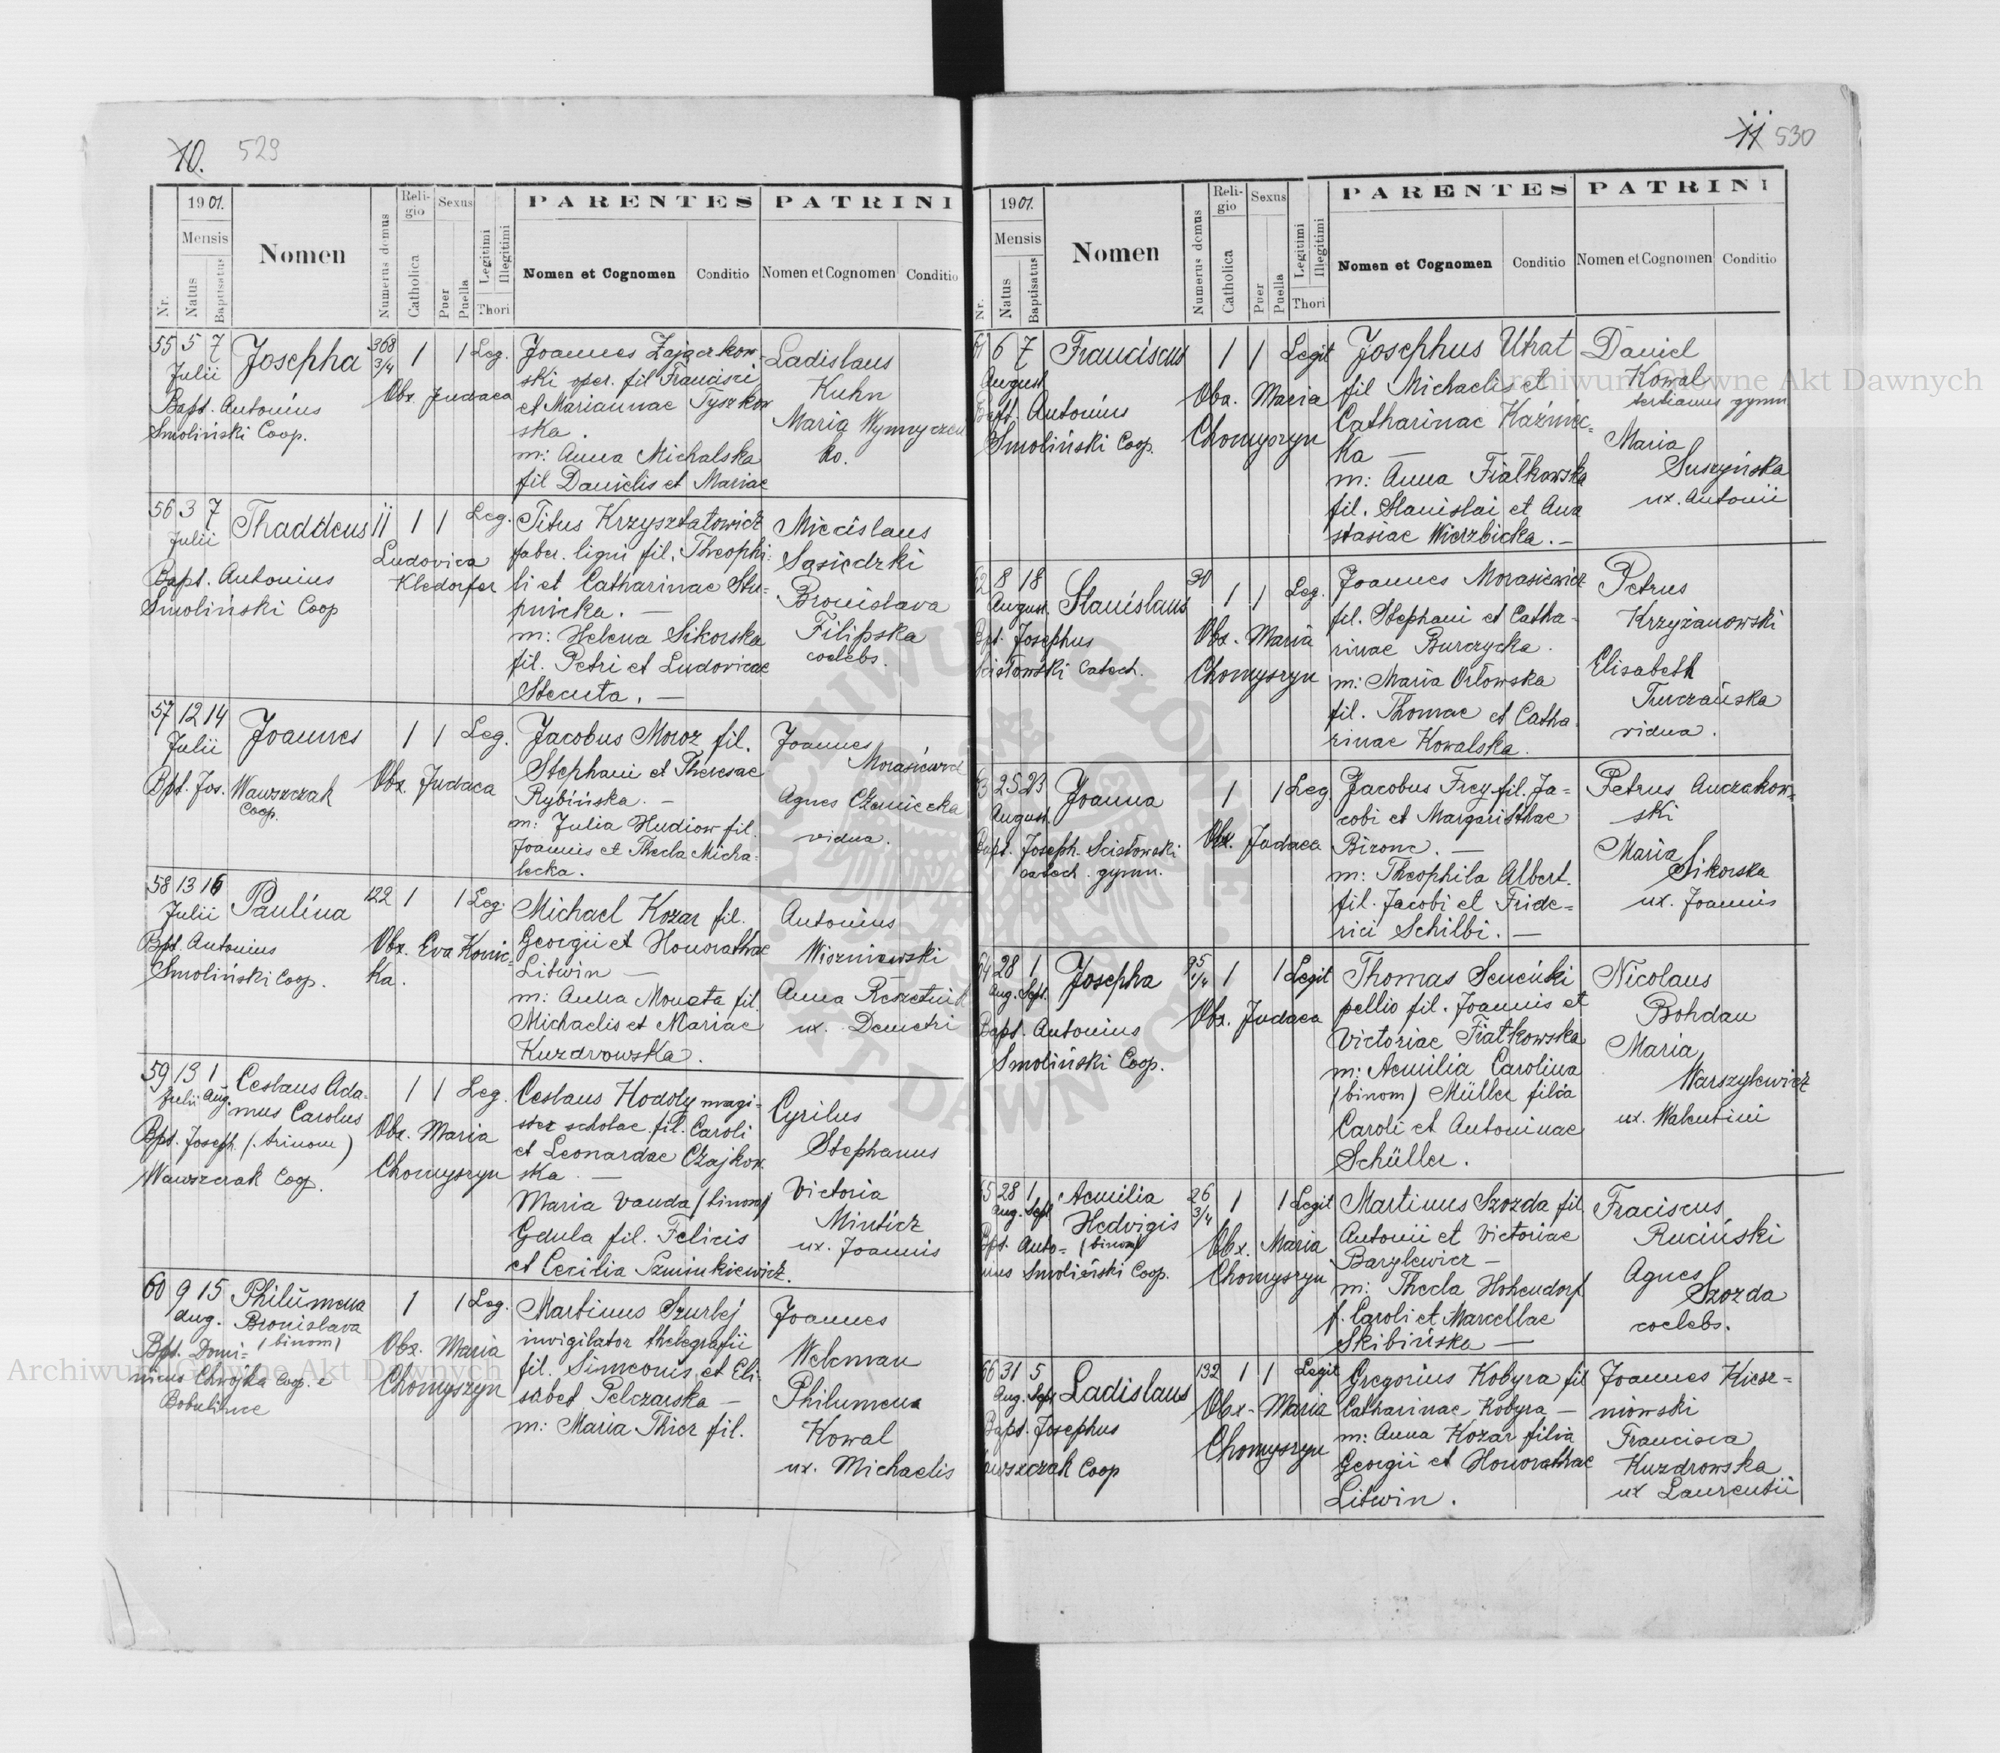 10. 529
1901.
Mensis
Nr.
Natus
Baptisatus
Nomen
Numerus domus
Religio
Catholica
Sexus
Puer
Puella
Legitimi
Illegitimi
Thori
PARENTES
Nomen et Cognomen
Conditio
PATRINI
Nomen et Cognomen
Conditio
55 5 7 Josepha 368 3/4 1 1 Leg.
Julii
Bapt. Antonius
Smoliński Coop.
Obx. Judaca
Joannes Zajączkow-
ski oper. fil Francisci
et Mariannae Tyszkow
ska.
m: Anna Michalska
fil Danielis et Mariae
Ladislaus
Kuhn
Maria Wynnyczen
ko.
56 3 7 Thaddeus 11 1 1 Leg.
Julii
Bapt. Antonius
Smoliński Coop
Ludovica
Kledorfer
Titus Krzyształowicz
faber. ligni fil. Theophi-
li et Catharinae Stu-
pnicka. —
m: Helena Sikorska
fil. Petri et Ludovicae
Stecuta. —
Miecislaus
Sąsiedzki
Bronislava
Filipska
coelebs.
57 12 14 Joannes 1 1 Leg.
Julii
Bpt. Jos. Wawszczak
Coop.
Obx. Judaca
Jacobus Moroz fil.
Stephani et Theresae
Rybińska. —
m: Julia Hudiow fil.
Joannis et Thecla Micha-
lecka.
Joannes
Agnes
vidua.
58 13 16 Paulina 122 1 1 Leg.
Julii
Bpt. Antonius
Smoliński Coop.
Obx. Eva Konic-
ka.
Michael Kozar fil.
Georgii et Honorathae
Litwin —
m: Anna Moneta fil.
Michaelis et Mariae
Kuzdrowska.
Antonius
Wiszniewski
Anna
ux. Demetri
59 13 1 Ceslaus Ada-
Julii Aug. mus Carolus
Bpt. Joseph (trinom)
Wawszczak Coop.
1 1 Leg.
Obx. Maria
Chomyszyn
Ceslaus Hodoly magi-
ster scholae fil. Caroli
et Leonardae Czajkow
ska. —
Maria Vanda (binom)
Gdula fil. Felicis
et Cecilia Szminkiewicz.
Cyrilus
Stephanus
Victoria
Minticz
ux. Joannis
60 9 15 Philumena
Aug. Bronislava
Bpt. Domi- (binom)
nicus Chwojka Coop. e
1 1 Leg.
Obx. Maria
Chomyszyn
Martinus Szurlej
invigilator thelegrafii
fil. Simeonis et Eli-
sabet Pelczarska —
m: Maria Thier fil.
Joannes
Weleman
Philumena
Kowal
ux. Michaelis
11 530
1901.
Mensis
Nr.
Natus
Baptisatus
Nomen
Numerus domus
Religio
Catholica
Sexus
Puer
Puella
Legitimi
Illegitimi
Thori
PARENTES
Nomen et Cognomen
Conditio
PATRINI
Nomen et Cognomen
Conditio
61 6 7 Franciscus 1 1 Legit
August
Bapt. Antonius
Smoliński Coop.
Obx. Maria
Chomyszyn
Josephus Utrat
fil Michaelis et
Catharinae Kaźmic-
ka —
m: Anna Fiałkowska
fil. Stanislai et Ana
stasiae Wierzbicka. —
Daniel
Kowal
tertianus gymn
Maria
Suszyńska
ux. Antonii
62 8 18 Stanislaus 30 1 1 Leg.
August.
Bpt. Josephus
Scisłowski Catech.
Obx. Maria
Chomyszyn
Joannes Morasiewicz
fil. Stephani et Catha-
rinae Burczycka.
m: Maria Orłowska
fil. Thomae et Catha-
rinae Kowalska.
Petrus
Krzyżanowski
Elisabeth
Turczańska
vidua.
63 25 23 Joanna 1 1 Leg
August.
Bapt. Joseph. Scisłowski
catech. gymn.
Obx. Judaca
Jacobus Frey fil. Ja-
cobi et Margarithae
Bizonc. —
m: Theophila Albert.
fil. Jacobi et Fride-
rici Schilbi. —
Petrus Auczakow-
ski
Maria
Sikorska
ux. Joannis
64 28 1 Josepha 95 1/4 1 1 Legit
Aug. Sept.
Bapt. Antonius
Smoliński Coop.
Obx. Judaca
Thomas Seneński
pellio fil. Joannis et
Victoriae Fiałkowska
m: Aemilia Carolina
(binom) Müller filia
Caroli et Antoninae
Schüller.
Nicolaus
Bohdan
Maria
Warszylewicz
ux. Walentini
65 28 1 Aemilia 26 3/4 1 1 Legit
Aug. Sept Hedvigis
Bpt. Anto- (binom)
nius Smoliński Coop.
Obx. Maria
Chomyszyn
Martinus Szozda fil
Antonii et Victoriae
Barylewicz —
m: Thecla Hohendorf
f. Caroli et Marcellae
Skibińska —
Fraciscus
Ruciński
Agnes
Szozda
coelebs.
66 31 5 Ladislaus 132 1 1 Legit
Aug. Sept
Bapt. Josephus
Wawszczak Coop
Obx. Maria
Chomyszyn
Gregorius Kobyra fil
Catharinae Kobyra —
m: Anna Kozar filia
Georgii et Honorathae
Litwin.
Joannes Kiesz-
niowski
Francisca
Kuzdrowska
ux Laurentii
Archiwum Główne Akt Dawnych
Archiwum Główne Akt Dawnych
ARCHIWUM GŁÓWNE AKT DAWNYCH